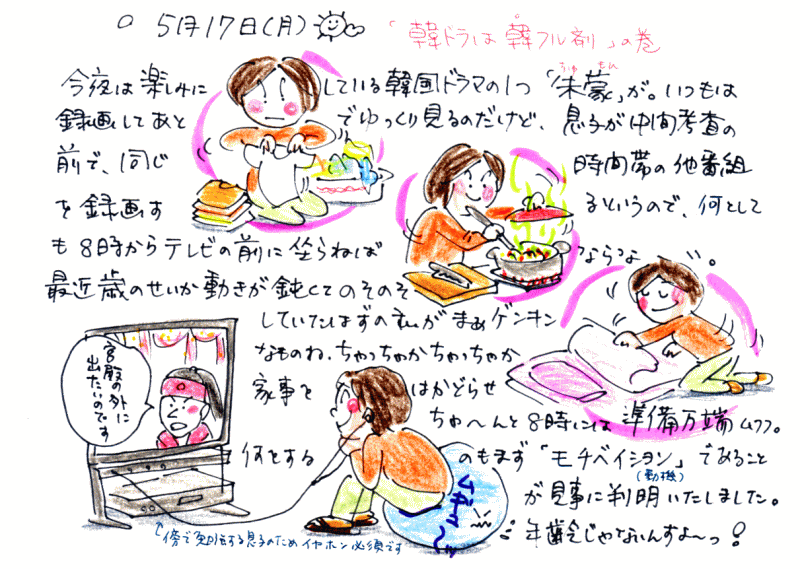 ○ 5月17日(月)
「韓ドラは 韓フル剤」の巻
今夜は楽しみにしている韓国ドラマの1つ「朱蒙」が。いつもは
ちゅ もん
録画してあとでゆっくり見るのだけど、息子が中間考査の
前で、同じ時間帯の他番組
を録画するというので、何として
も8時からテレビの前に坐らねばならな〜い。
最近歳のせいか動きが鈍くてのそのそ
していたはずの私がまあゲンキン
なものね、ちゃっちゃかちゃっちゃか
家事をはかどらせ
ちゃ〜んと8時には準備万端ムフフ。
何をするのもまず「モチベイション」であること
(動機)
が見事に判明いたしました。
年齢じゃないんすよ〜っ!
宮殿の外に
出たいのです
ムギュ〜ッ
↑傍で勉強する息子のためイヤホン必須です